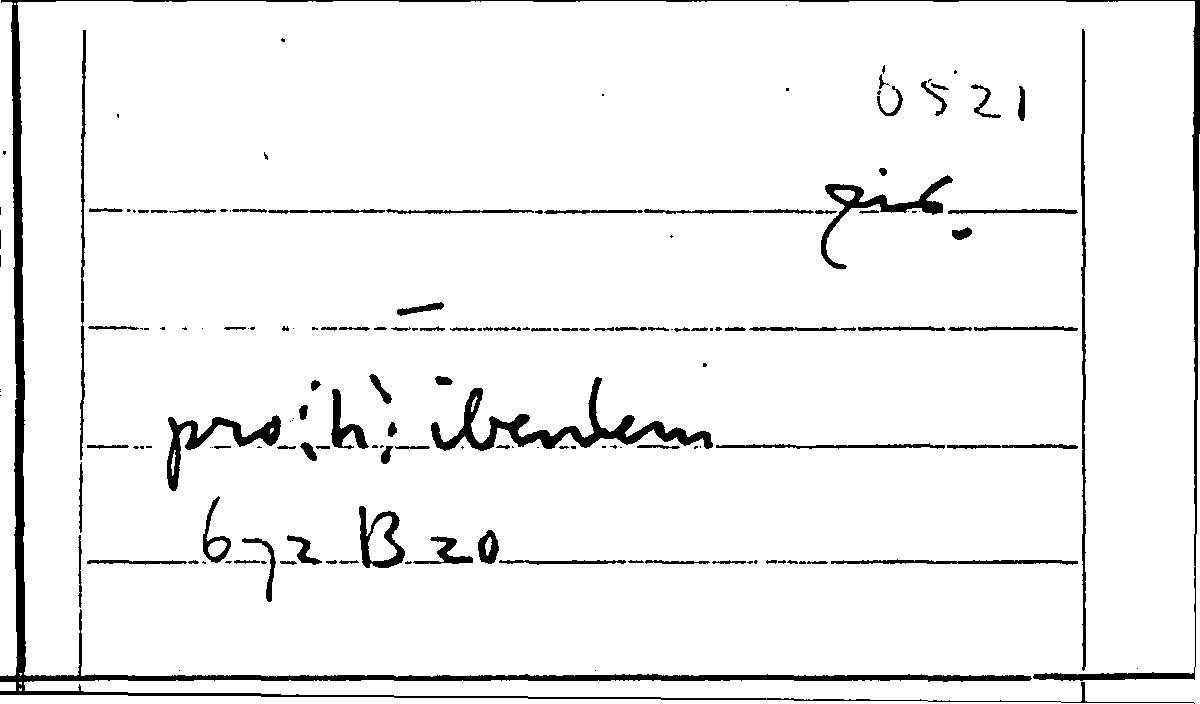 0521
pro⋮h⋮ibentem
672 B 20